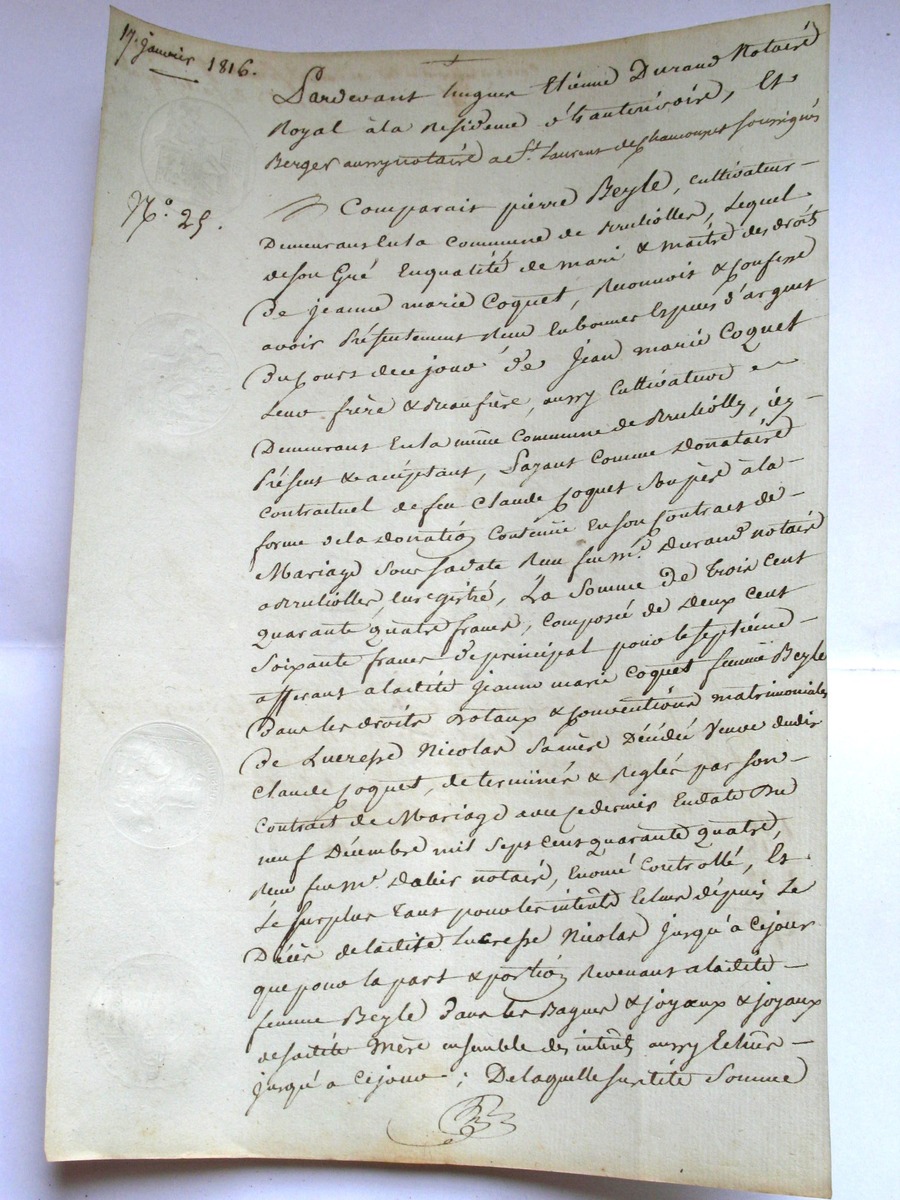 17. janvier 1816.
Pardevant hugues Etienne Durand Notaire
Royal à la Residence d'hauterivoire, Et
Berger aussy notaire a St. Laurent de chamousset soussignés
N.o 25.
Comparait pierre Beyle, cultivateur
Demeurant En la Commune de Brulliolles, Lequel
de son Gré En qualité de mari & maître des droits
De jeanne marie Coquet, Reconnoit & Confesse
avoir Présentement Reçu En bonnes Espèces d'argent
Du Cours de ce jour De Jean marie Coquet
Leur frère & Beaufrère, aussy Cultivateur
Demeurant En la même Commune de Brullioles, icy
Présent & acceptant, Payant Comme Donataire
Contractuel de feu Claude Coquet Son père à la
forme de la Donation Contenüe En son Contract de
Mariage Sous sa date Reçu feu Me. Durand notaire
a Brullioles, Enregistré, La Somme De Trois Cent
Quarante quatre francs, Composée de Deux Cent
Soixante francs De principal pour le Septième
afferant a ladite Jeanne marie Coquet femme Beyle
Dans les droits Dotaux & Conventions matrimoniales
De Lucresse Nicolas Sa mère Décédée Veuve dudit
Claude Coquet, determinés & Reglés par Son
Contrat de Mariage avec ce dernier En date Du
neuf Décembre mil Sept Cent quarante quatre,
Reçu feu Me. notaire, Controllé, Et
Le Surplus Tant pour les intérêts Echus dépuis Le
Décès de ladite Lucresse Nicolas Jusqu'à Ce jour
que pour la part & portion Revenant a ladite
femme Beyle Dans les Bagues & joyaux & joyaux
de sadite Mère ensemble des intérêts aussy Echus
jusqu'a Ce jour ; De laquelle Susdite Somme